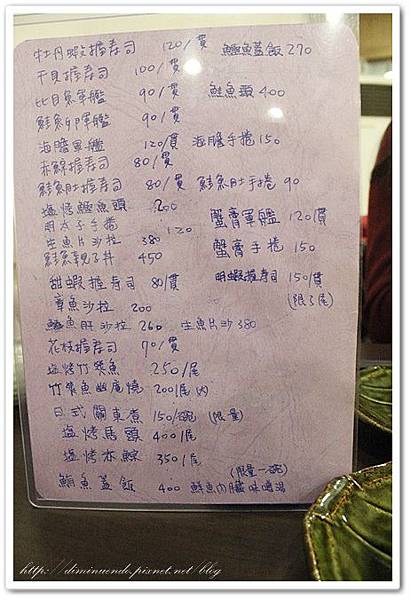 牡丹蝦握壽司 120/貫 鰻魚蓋飯 270
干貝握壽司 100/貫
比目魚軍艦 90/貫 鮭魚頭 400
鮭魚卵軍艦 90/貫
海膽軍艦 120/貫 海膽手捲 150
赤鯥握寿司 80/貫
鮭魚肚握寿司 80/貫 鮭魚肚手捲 90
塩烤鰹魚頭 200 蟹膏軍艦 120/貫
明太子手捲 120
生魚片沙拉 380 蟹膏手捲 150
鮭魚親子丼 450
甜蝦握寿司 80/貫 明蝦握寿司 150/貫
章魚沙拉 200 (限3尾)
魚肝沙拉 260 生魚片沙 380
花枝握寿司 70/貫
塩烤竹筴魚 250/尾
竹筴魚幽庵燒 200/尾
日式關東煮 150/碗 (限量)
塩烤馬頭 400/尾
塩烤赤鯮 350/尾
(限量一碗)
鮪魚蓋飯 400 鮭魚內臟味噌湯
http://diminuendo.pixnet.net/blog